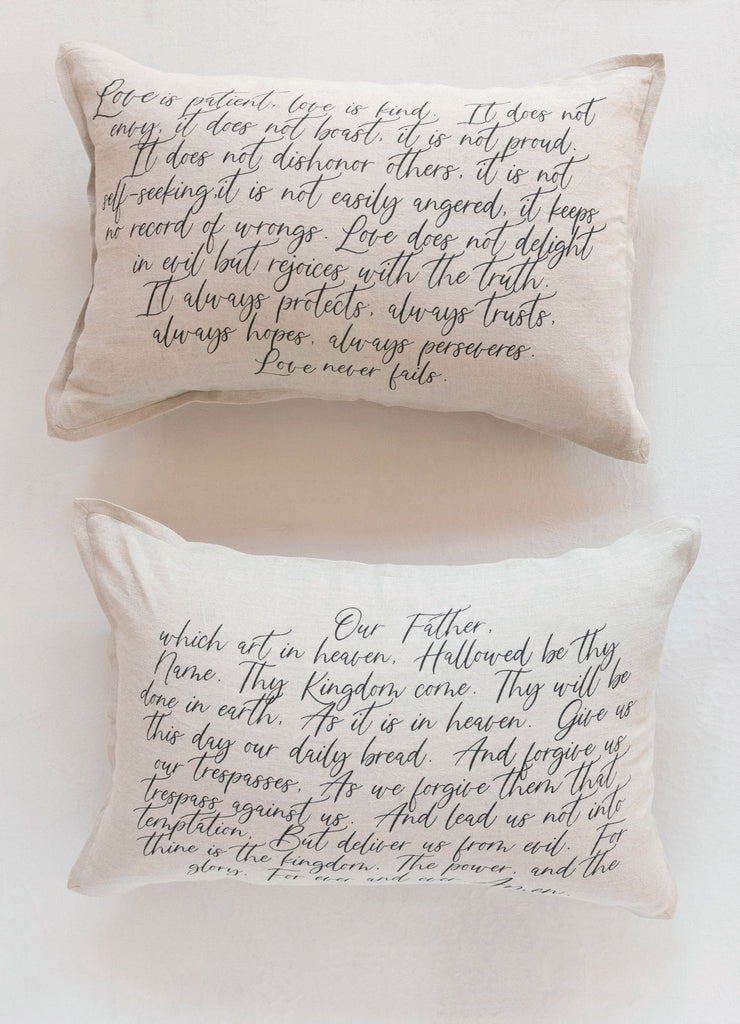 Love is patient, love is kind. It does not
envy, it does not boast, it is not proud.
It does not dishonor others, it is not
self-seeking, it is not easily angered, it keeps
no record of wrongs. Love does not delight
in evil but rejoices with the truth.
It always protects, always trusts,
always hopes, always perseveres.
Love never fails.
Our Father,
which art in heaven, Hallowed be thy
Name. Thy Kingdom come. Thy will be
done in earth, As it is in heaven. Give us
this day our daily bread. And forgive us
our trespasses, As we forgive them that
trespass against us. And lead us not into
temptation, But deliver us from evil. For
thine is the kingdom, The power, and the
glory, For ever and ever Amen.